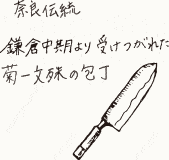 奈良伝統
鎌倉中期より受けつがれた
菊一文殊の包丁